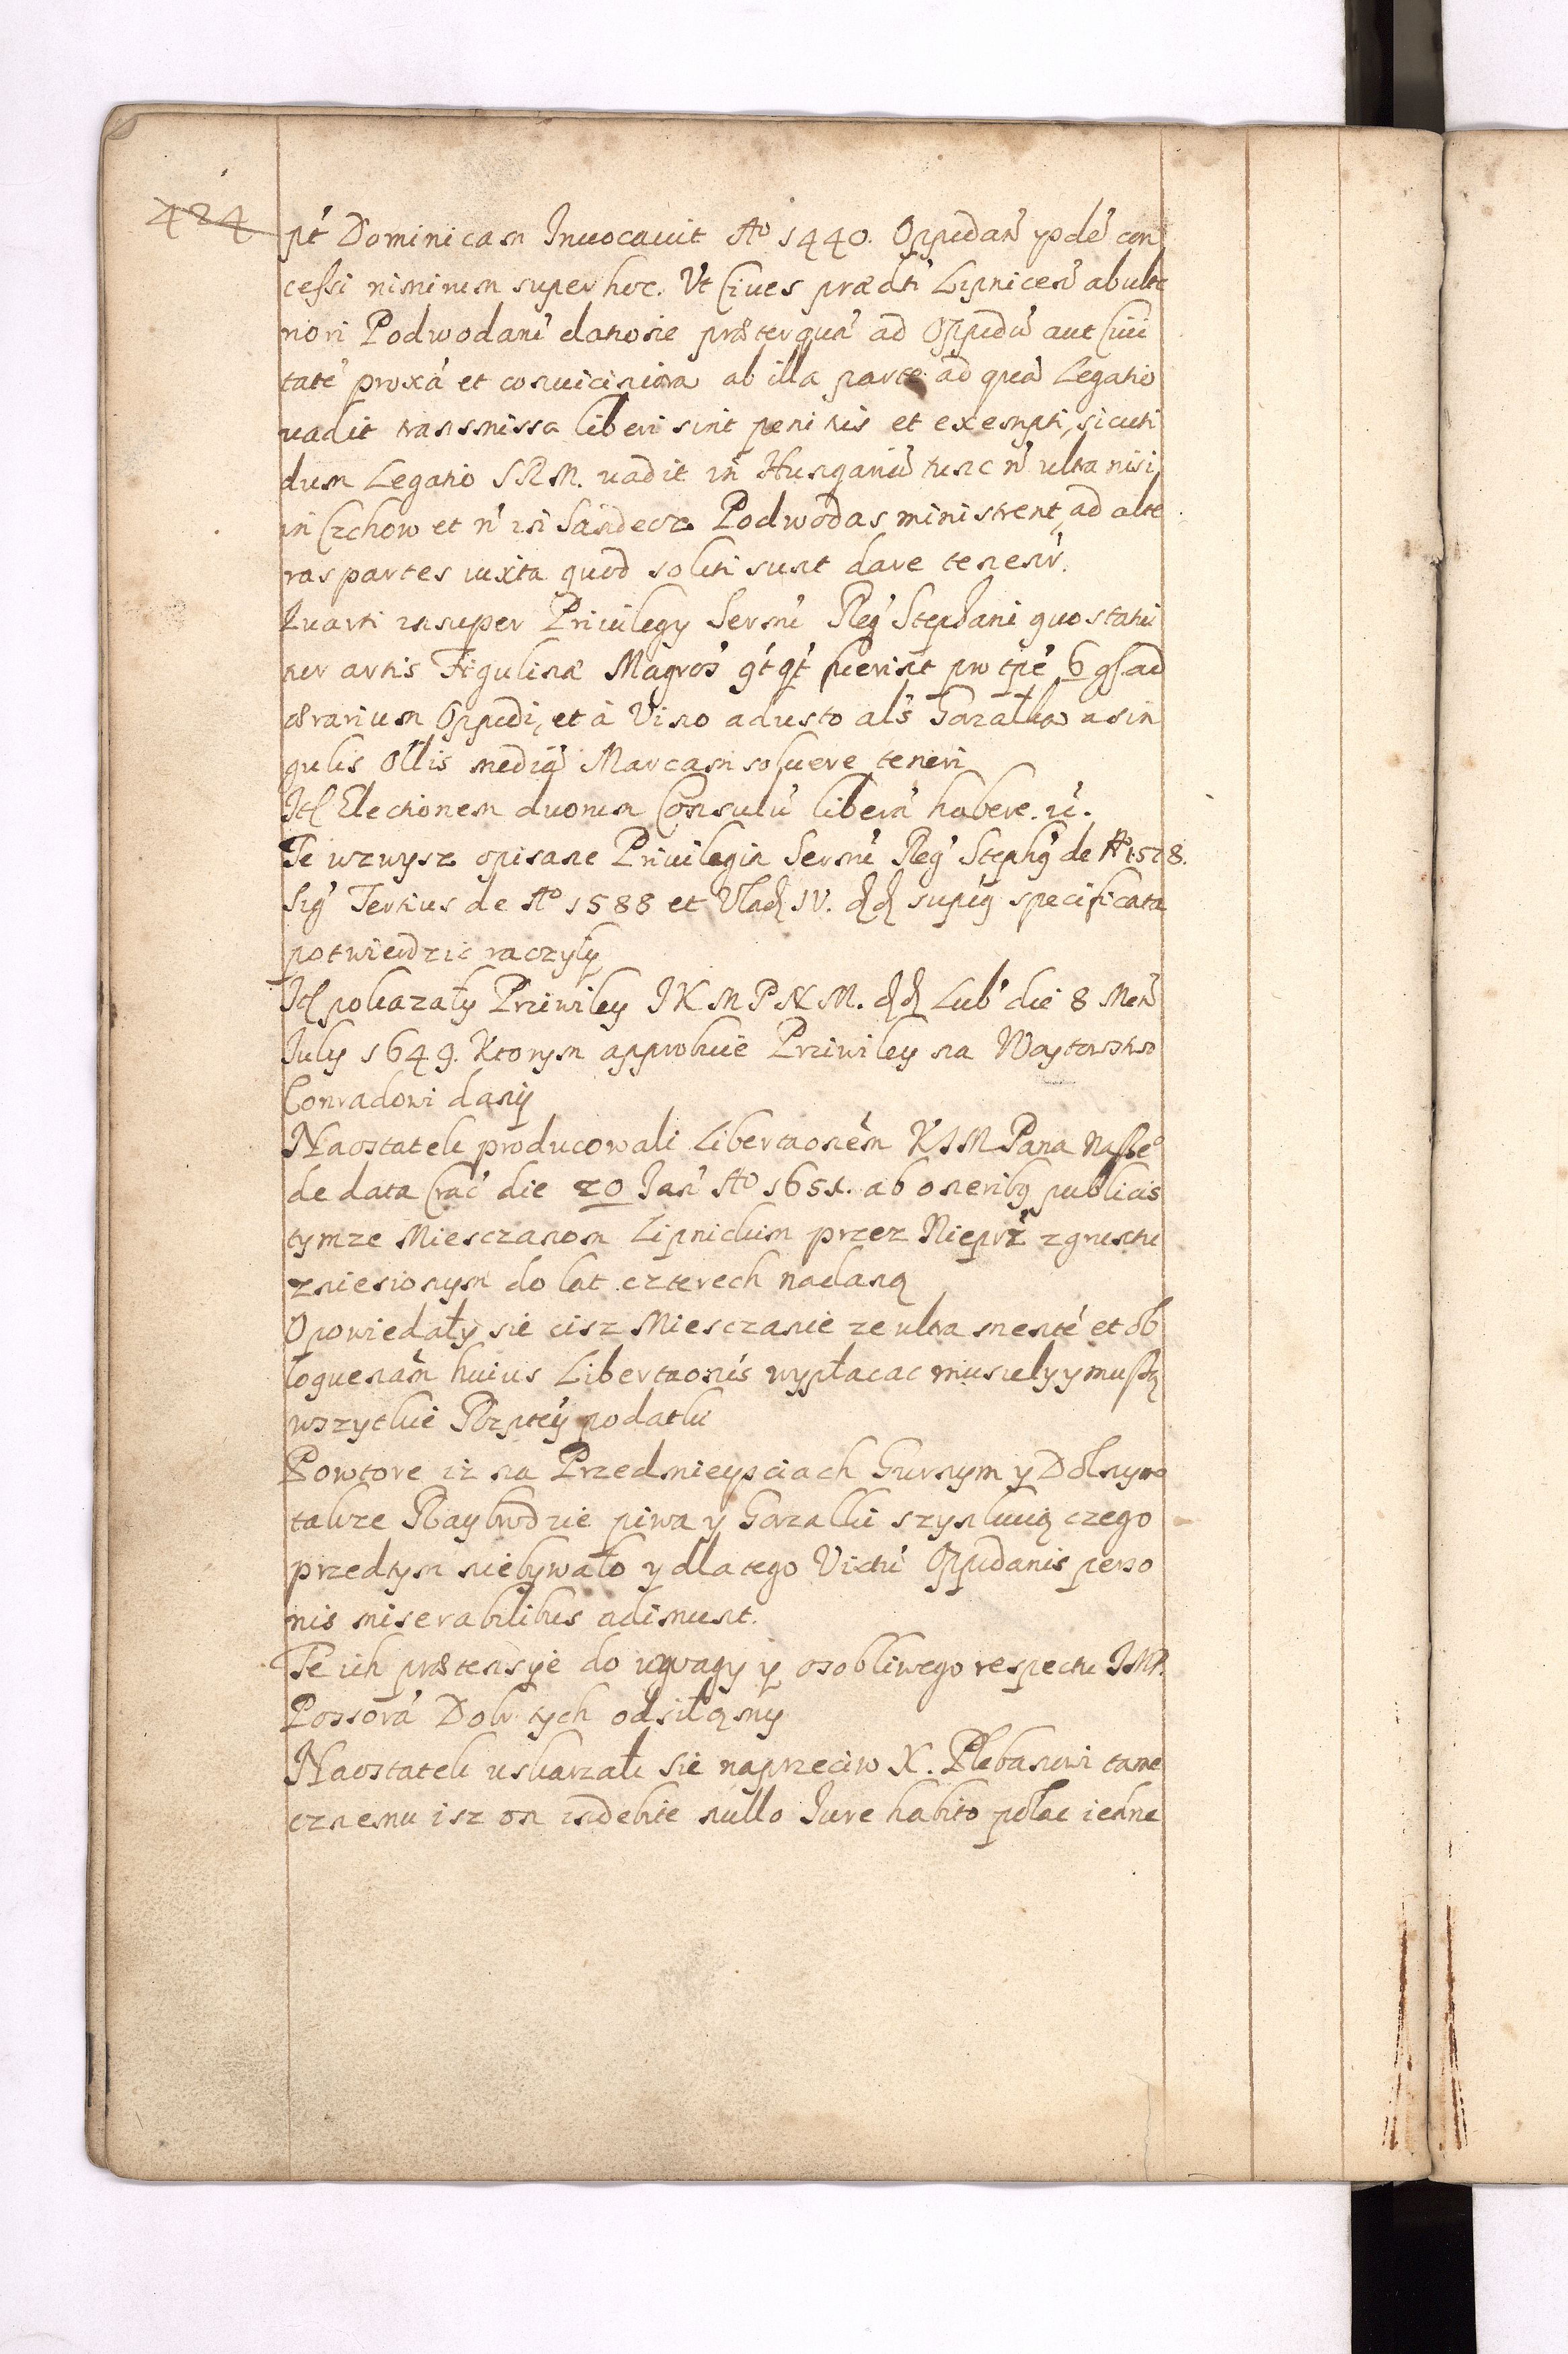 424
pt Dominicam Inuocauit Ao 1440. Oppidan ypdē con
cessi nimirum super hoc. Vt Ciues prædti Lipniceñ ab ulte
riori Podwodarū dationie præterquā ad Oppidū aut Ciui
tatē proxā et conuiciniora ab illa parte ad quā Legatio
uadit transmissa liberi sint penitus et exempti, sicuti
dum Legatio SRM. uadit in Hungariā tunc ñ ultra nisi
in Czchow et ñ in Sandecz Podwodas ministrent, ad alte
ras partes iuxta quod soliti sunt dare tenenr.
Quarti insuper Priuilegy Sermi Reg Stephani quo statui
tur artis Figulinæ Magros qtqt fuerint pro tpe 6 gl. ad
ærarium Oppidi, et à Vino adusto als Garzałka a sin
gulis Ollis mediā Marcam soluere teneri
Itl Electionem duorum Consulū liberā habere. rē.
Te wzwysz opisane Priuilegia Sermi Reg Stephg de Ao 1578.
Sig Tertius de Ao 1588 et Vlad IV. dd supig specificata
potwierdzic raczyły
Itl pokazały Prziwiley JKMPNM. dd Lub die 8 Meñ
July 1649. Ktorym approbuie Prziwiley na Woytowstwo
Conradowi dany
Naostatek producowali Libertaonem KJM Pana Nasße
de data Crac die 20 Jan Ao 1651. ab oneribg publicis
tymze Miesczanom Lipnickim przez Nieprz zgruntu
zniesionym do lat czterech nadaną
Opowiedały sie cisz Miesczanie ze ultra mentē et ob
loquenām huius Libertaonis wypłacac musiely y mußą
wszytkie Rzptey podatki
Powtore iz na Przedmieysciach Gurnym y Dolnym
takze Raybrodzie piwa y Gorzałki szynkuią czego
przedtym niebywało y dlatego Victū Oppidanis perso
nis miserabilibus adimunt.
Te ich prætensye do uwagy y osobliwego respectu JMP.
Possora Dobr tych odsiłamy
Naostatek uskarzali sie naprzeciw X. Plebanowi tame
cznemu isz on indebite nullo Jure habito polac iedne